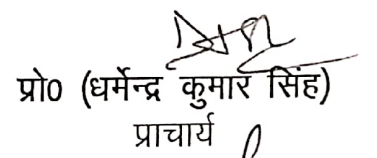 प्रो0 (धर्मेन्द्र कुमार सिंह)
प्राचार्य